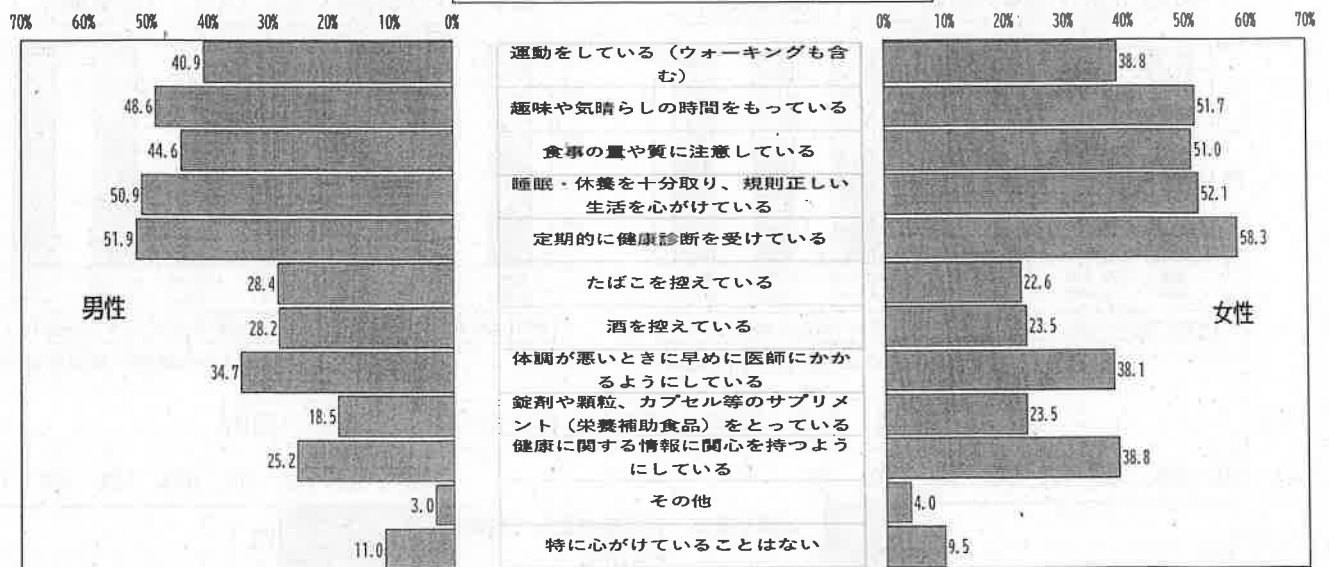 70% 60% 50% 40% 30% 20% 10% 0%
0% 10% 20% 30% 40% 50% 60% 70%
40.9
運動をしている(ウォーキングも含
む)
38.8
48.6
趣味や気晴らしの時間をもっている
51.7
44.6
食事の量や質に注意している
51.0
50.9
睡眠・休養を十分取り、規則正しい
生活を心がけている
52.1
51.9
定期的に健康診断を受けている
58.3
28.4
たばこを控えている
22.6
男性
女性
28.2
酒を控えている
23.5
34.7
体調が悪いときに早めに医師にかか
るようにしている
38.1
18.5
錠剤や顆粒、カプセル等のサプリメ
ント(栄養補助食品)をとっている
23.5
25.2
健康に関する情報に関心を持つよう
にしている
38.8
3.0
その他
4.0
11.0
特に心がけていることはない
9.5